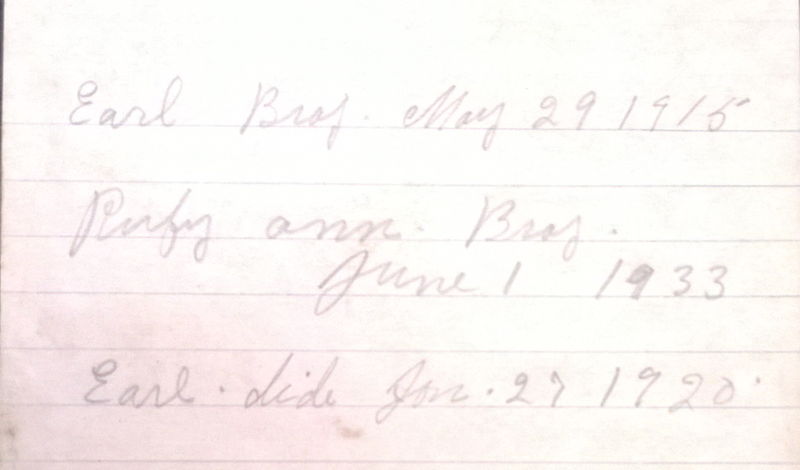 Earl Braf. May 29 1915
Ruby ann. Bray.
June 1 1933
Earl. dide Jan. 27 1920.